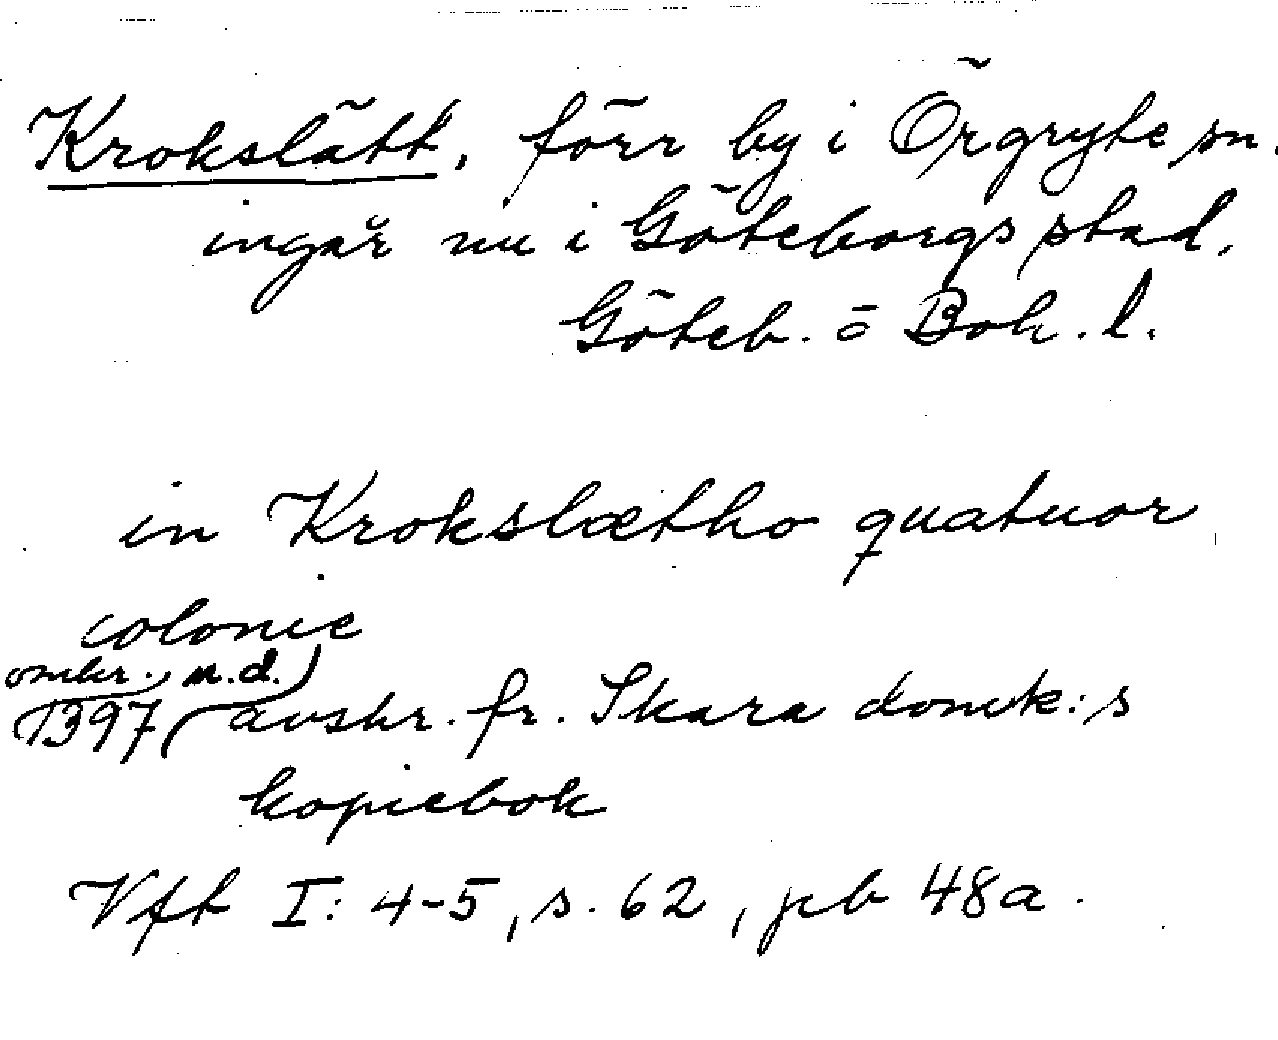 Krokslätt, förr by i Örgryte sn.
ingår nu i Göteborgs stad,
Göteb. o Boh. l.
in Krokslætho quatuor
colonie
omkr. n.d.)
1397 (avskr. fr. Skara domk:s
kopiebok
Vft I: 4-5, s. 62, pb 48a.